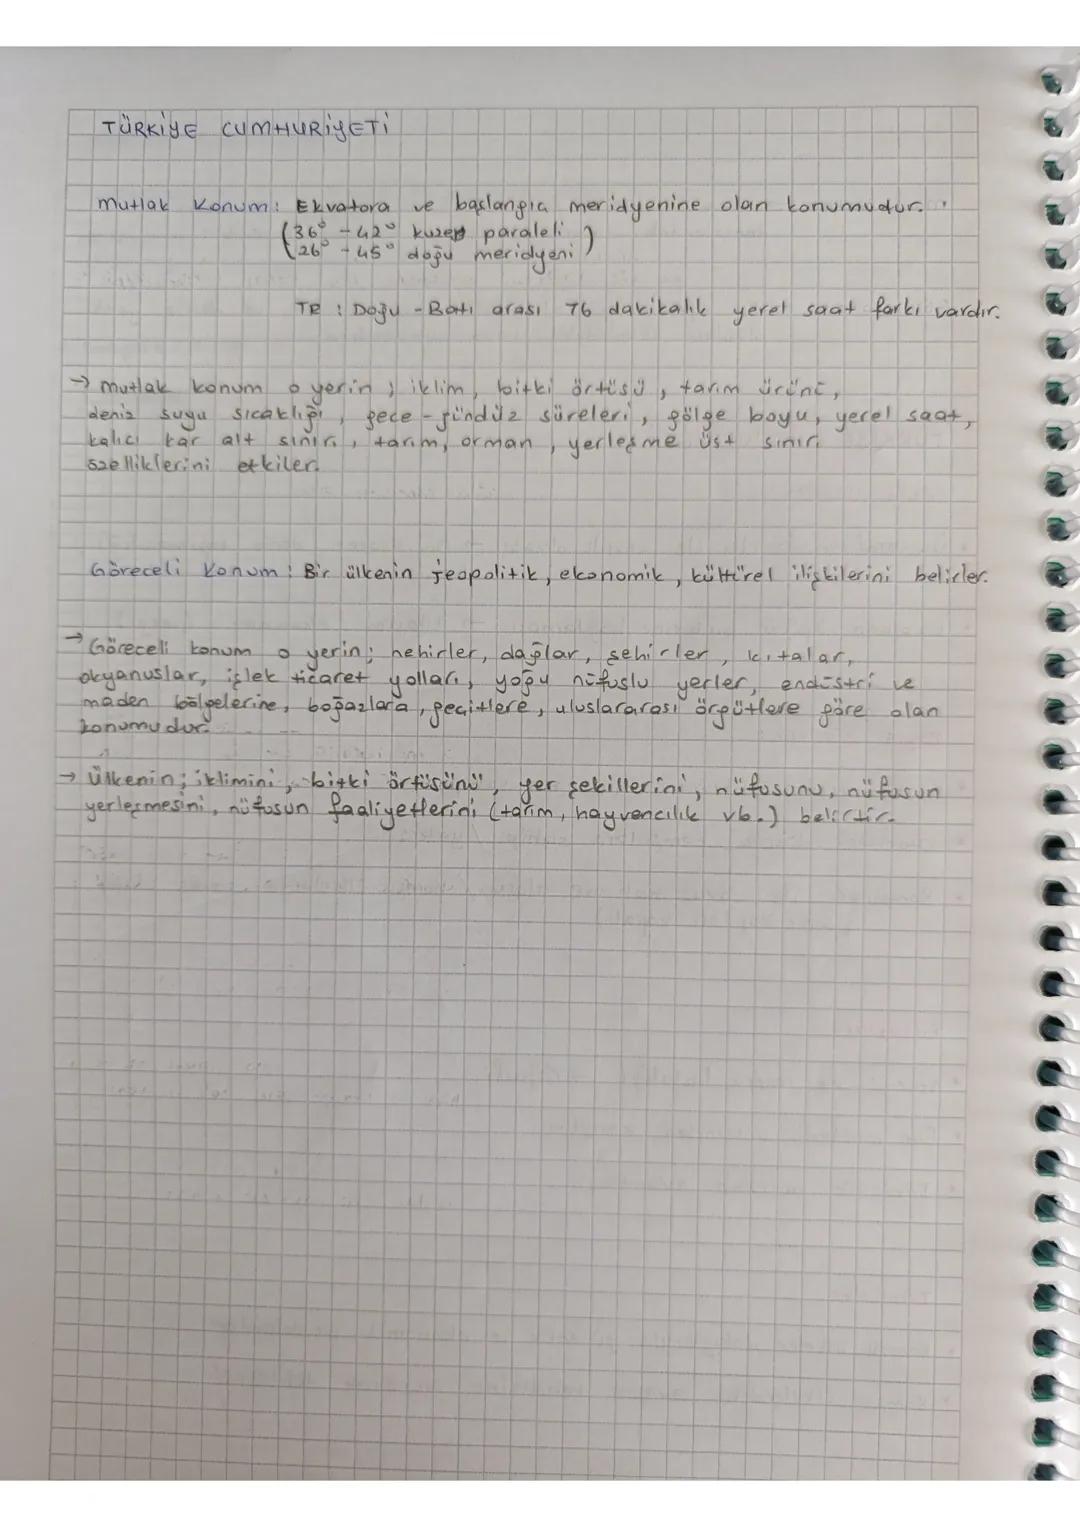 TÜRKİYE CUMHURİYETİ
Mutlak Konum: Ekvatora ve başlangıç meridyenine olan konumudur.
(36° - 42° kuzey paraleli
26° - 45° doğu meridyeni)
TR : Doğu - Batı arası 76 dakikalık yerel saat farkı vardır.
→ mutlak konum o yerin ; iklim, bitki örtüsü, tarım ürünü,
deniz suyu sıcaklığı, gece - gündüz süreleri, gölge boyu, yerel saat,
kalıcı kar alt sınırı, tarım, orman, yerleşme üst sınırı
özelliklerini etkiler.
Göreceli Konum : Bir ülkenin jeopolitik, ekonomik, kültürel ilişkilerini belirler.
→ Göreceli konum o yerin; nehirler, dağlar, şehirler, kıtalar,
okyanuslar, işlek ticaret yolları, yoğu nüfuslu yerler, endüstri ve
maden bölgelerine, boğazlara, geçitlere, uluslararası örgütlere göre olan
konumudur.
→ Ülkenin; iklimini, bitki örtüsünü, yer şekillerini, nüfusunu, nüfusun
yerleşmesini, nüfusun faaliyetlerini (tarım, hayvencılık vb.) belirtir.